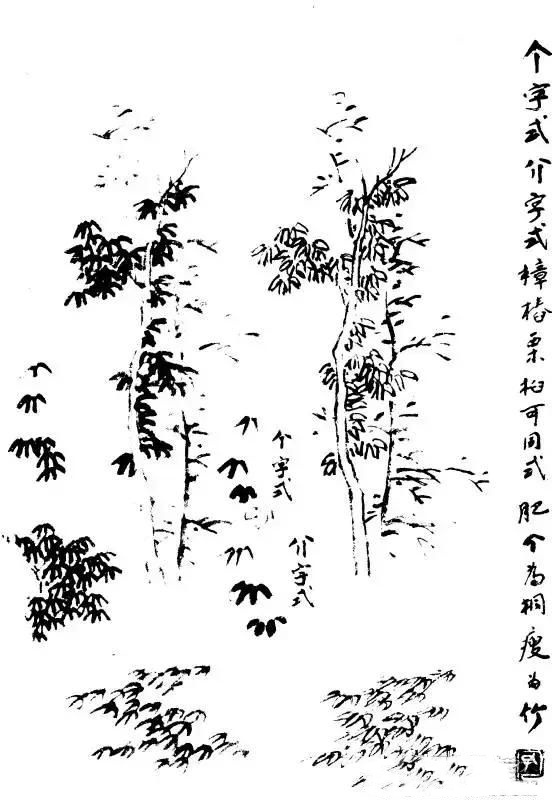 个字式介字式樟椿栗柏可同式肥个为桐瘦为竹
个字式
介字式